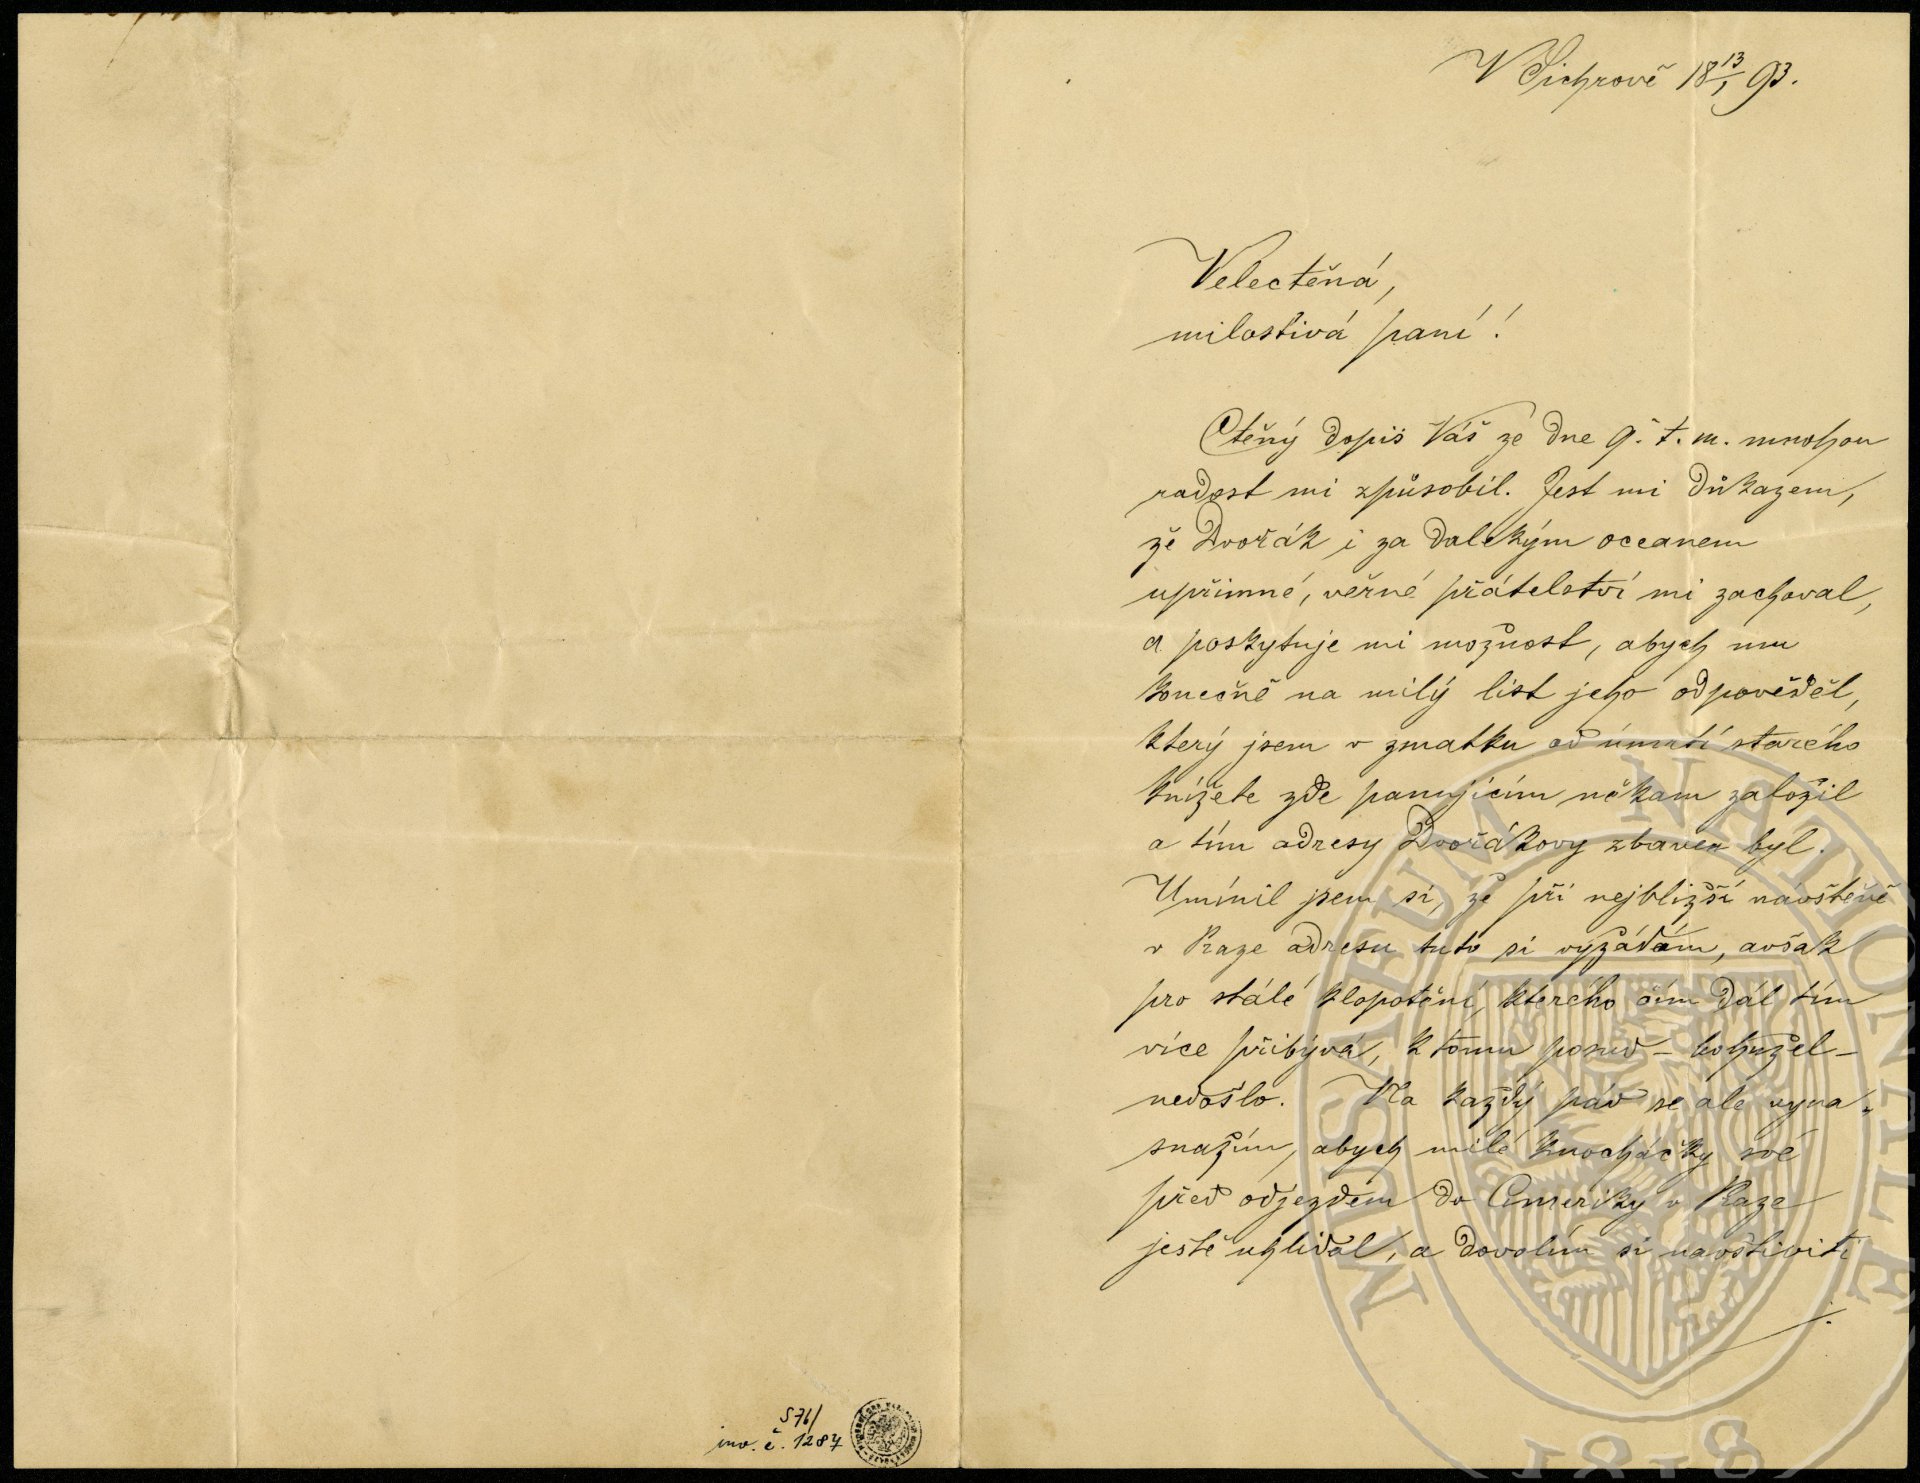 V Sichrově 18 13/1 93.
Velectěná,
milostivá paní!
Ctěný dopis Váš ze dne 9. t. m. mnohou
radost mi způsobil. Jest mi důkazem,
že Dvořák i za dalekým oceanem
upřimné, věrné přátelství mi zachoval,
a poskytuje mi možnost, abych mu
konečně na milý list jeho odpověděl,
který jsem v zmatku od úmrtí starého
knížete zde panujícím někam založil
a tím adresy Dvořákovy zbaven byl.
Umínil jsem si, že při nejbližší návštěvě
v Praze adresu tuto si vyžádám, avšak
pro stálé klopotění, kterého čím dál tím
více přibývá, k tomu posud – bohužel –
nedošlo. Na každý pád se ale vyna-
snažím, abych milé kmocháčky své
před odjezdem do Ameriky v Praze
ještě uhlídal, a dovolím si navštíviti
./.
S76/
inv. č. 1287
MUSAEUM NATIONALE
1818